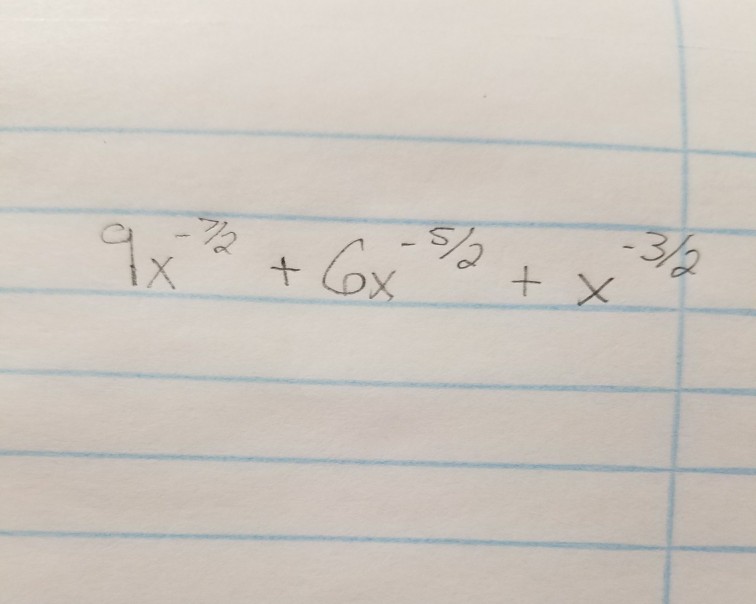 9x^{-7/2} + 6x^{-5/2} + x^{-3/2}